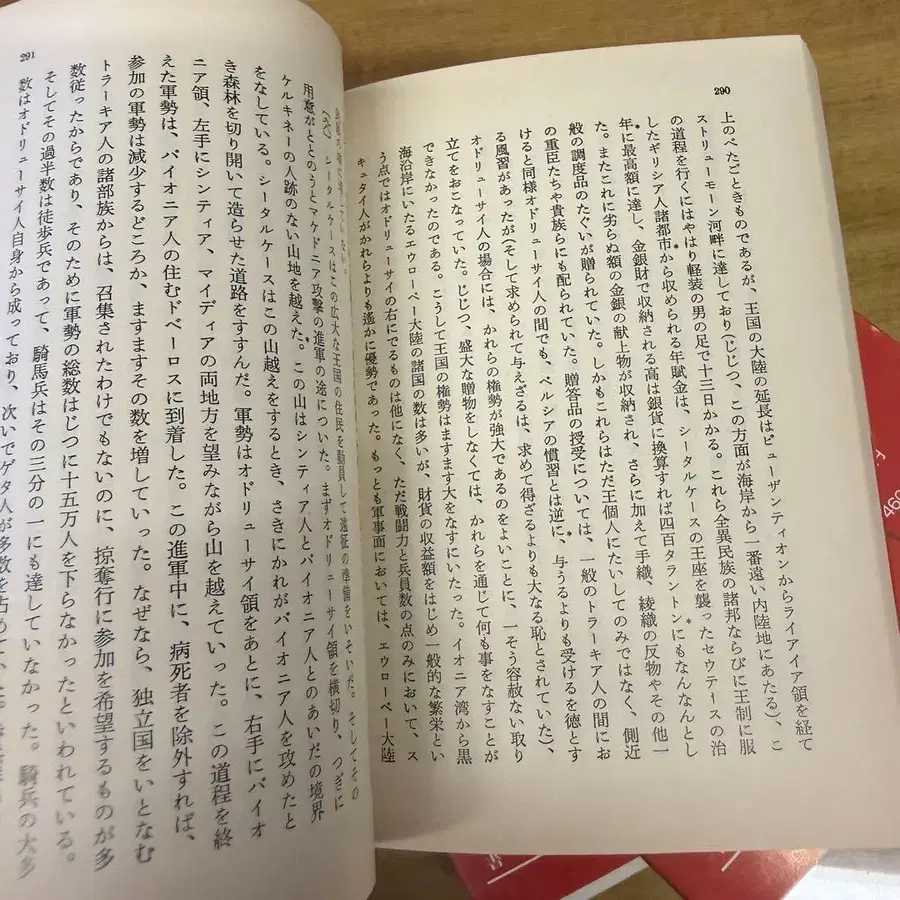 290
上のべたごときものであるが、王国の大陸の延長はビューザンティオンからライアイア領を経て
ストリューモーン河畔に達しており(じじつ、この方面が海岸から一番遠い内陸地にあたる)、こ
の道程を行くにはやはり軽装の男の足で十三日かかる。これら全異民族の諸邦ならびに王制に服
したギリシア人諸都市*から収められる年賦金は、シータルケースの王座を襲った*セウテースの治
年に最高額に達し、金銀財で収納される高は銀貨に換算すれば四百タラントン*にもなんなんとし
た。またこれに劣らぬ額の金銀の献上物が収納され、さらに加えて手織、綾織の反物やその他一
般の調度品のたぐいが贈られていた。しかもこれらはただ王個人にたいしてのみではなく、側近
の重臣たちや貴族らにも配られていた。贈答品の授受については、一般のトラーキア人の間にお
けると同様オドリューサイ人の間でも、ペルシアの慣習とは逆に*、与うるよりも受けるを徳とす
る風習があったが(そして求められて与えざるは、求めて得ざるよりも大なる恥とされていた)、
オドリューサイ人の場合には、かれらの権勢が強大であるのをよいことに、一そう容赦ない取り
立てをおこなっていた。じじつ、盛大な贈物をしなくては、かれらを通じて何も事をなすことが
できなかったのである。こうして王国の権勢はますます大をなすにいたった。イオニア湾から黒
海沿岸にいたるエウローペー大陸の諸国の数は多いが、財貨の収益額をはじめ一般的な繁栄とい
う点ではオドリューサイの右にでるものは他になく、ただ戦闘力と兵員数の点のみにおいて、ス
キュタイ人がかれらよりも遙かに優勢であった。もっとも軍事面においては、エウローペー大陸
291
シータルケースはこの広大な王国の住民を動員して遠征の準備をいそいだ。そしてその
用意がととのうとマケドニア攻撃の進軍の途についた。まずオドリューサイ領を横切り、つぎに
ケルキネーの人跡のない山地を越えた*。この山はシンティア人とパイオニア人とのあいだの境界
をなしている。シータルケースはこの山越えをするとき、さきにかれがパイオニア人を攻めたと
き森林を切り開いて造らせた道路をすすんだ。軍勢はオドリューサイ領をあとに、右手にパイオ
ニア領、左手にシンティア、マイディアの両地方を望みながら山を越えていった。この道程を終
えた軍勢は、パイオニア人の住むドベーロスに到着した。この進軍中に、病死者を除外すれば、
参加の軍勢は減少するどころか、ますますその数を増していった。なぜなら、独立国をいとなむ
トラーキア人の諸部族からは、召集されたわけでもないのに、掠奪行に参加を希望するものが多
数従ったからであり、そのために軍勢の総数はじつに十五万人を下らなかったといわれている。
そしてその過半数は徒歩兵であって、騎馬兵はその三分の一にも達していなかった。騎兵の大多
数はオドリューサイ人自身から成っており、次いでゲタイ人が多数を占めて
460